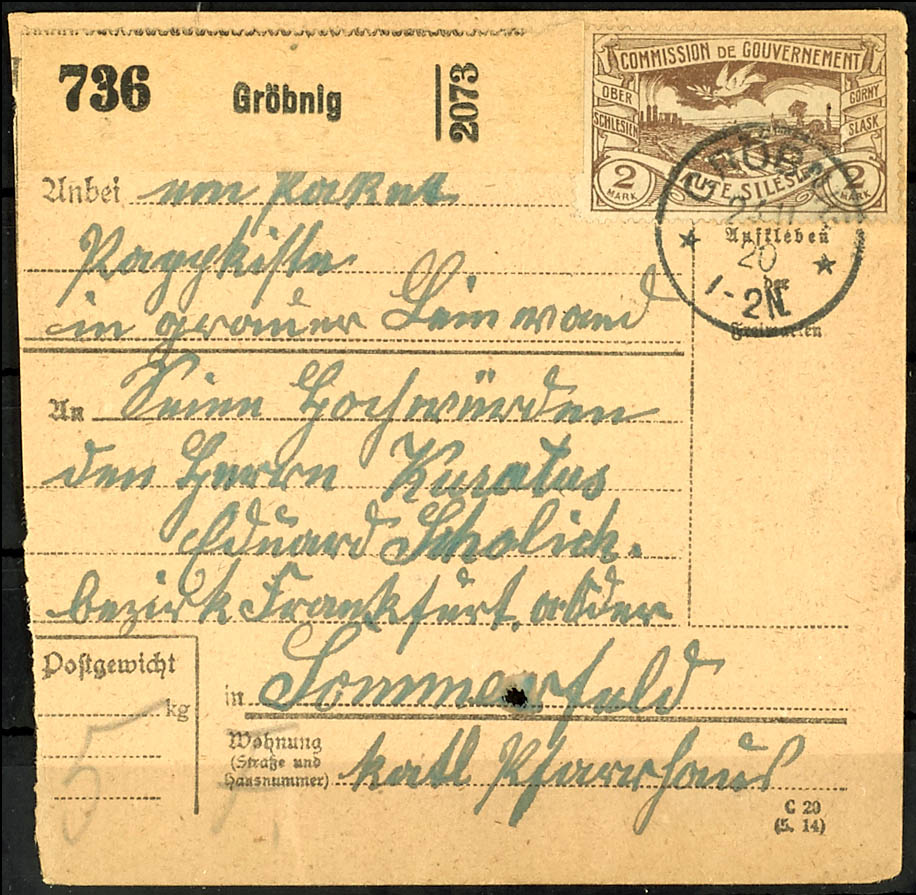 736
Gröbnig
2073
COMMISSION DE GOUVERNEMENT
OBER
SCHLESIEN
GORNY
SLASK
2
MARK
HAUTE SILESIE
2
MARK
20
1-2N
Aufkleben
der
Freimarken
Anbei ein Paket
Pappkiste
in grauer Leinwand
An Seine Hochwürden
den Herrn Kuratus
Eduard Scholich.
bezirk Frankfurt. a/Oder
in Sommerfeld
Postgewicht
kg
5
Wohnung
(Straße und
Hausnummer) kath Pfarrhaus
C 20
(5. 14)